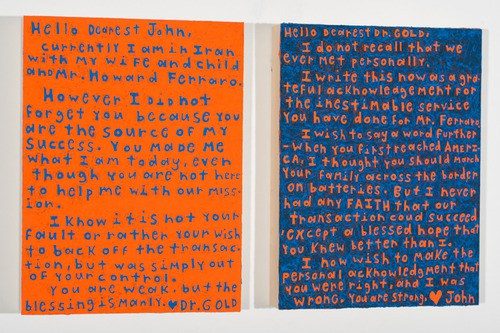 Hello Dearest John,
currently I am in Iran
with my wife and child
and Mr. Howard Ferraro.
However I did not
forget you because you
are the source of my
success. You made me
what I am today, even
though you are not here
to help me with our miss-
ion.
I know it is not your
fault or rather your wish
to back off the transac-
tion, but was simply out
of your control.
You are weak, but the
blessing is manly. ♥ Dr. GOLD
Hello Dearest Dr. GOLD,
I do not recall that we
ever met personally.
I write this now as a gra-
teful acknowledgement for
the inestimable service
you have done for Mr. Ferraro.
I wish to say a word further
-when you first reached Ameri-
ca, I thought you should march
your family across the border
on batteries. But I never
had any FAITH that our
transaction coud succeed
except a blessed hope that
you knew better than I.
I now wish to make the
personal acknowledgment that
you were right, and I was
wrong. You are strong. ♥ John